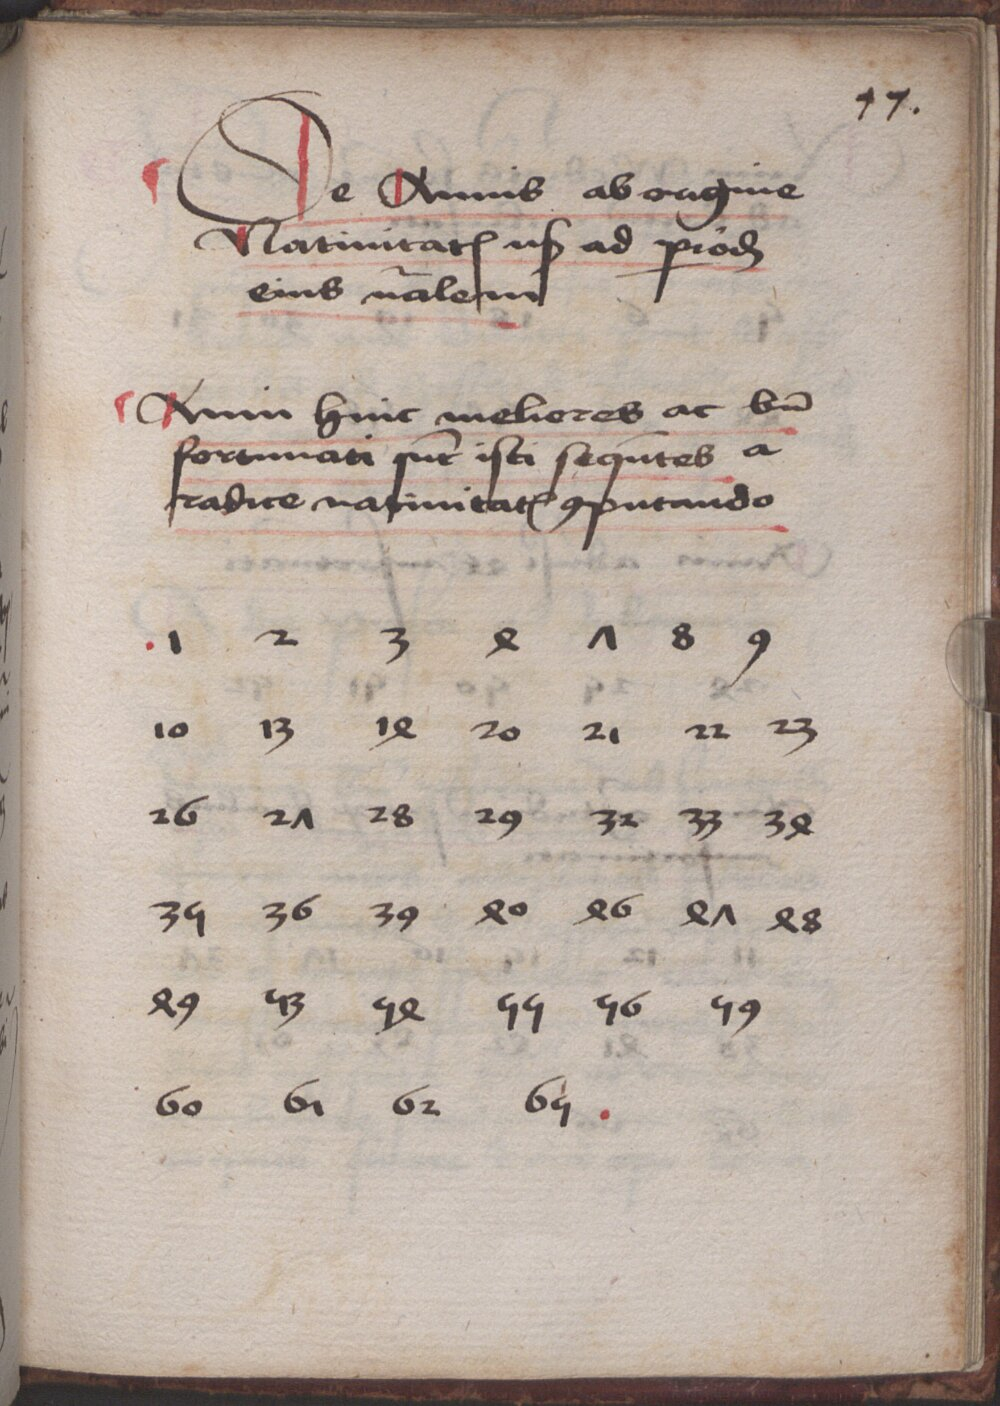 17.
De Annis ab origine
Natiuitatꝭ usꝫ ad piodꝫ
eius n̄alem
Anni huic meliores ac bn̄
fortunati sūt isti seqūtes a
radice natiuitatꝭ ꝯputando
. 1 2 3 4 7 8 9
10 13 14 20 21 22 23
26 27 28 29 32 33 34
35 36 39 40 46 47 48
49 53 54 55 56 59
60 61 62 65 .